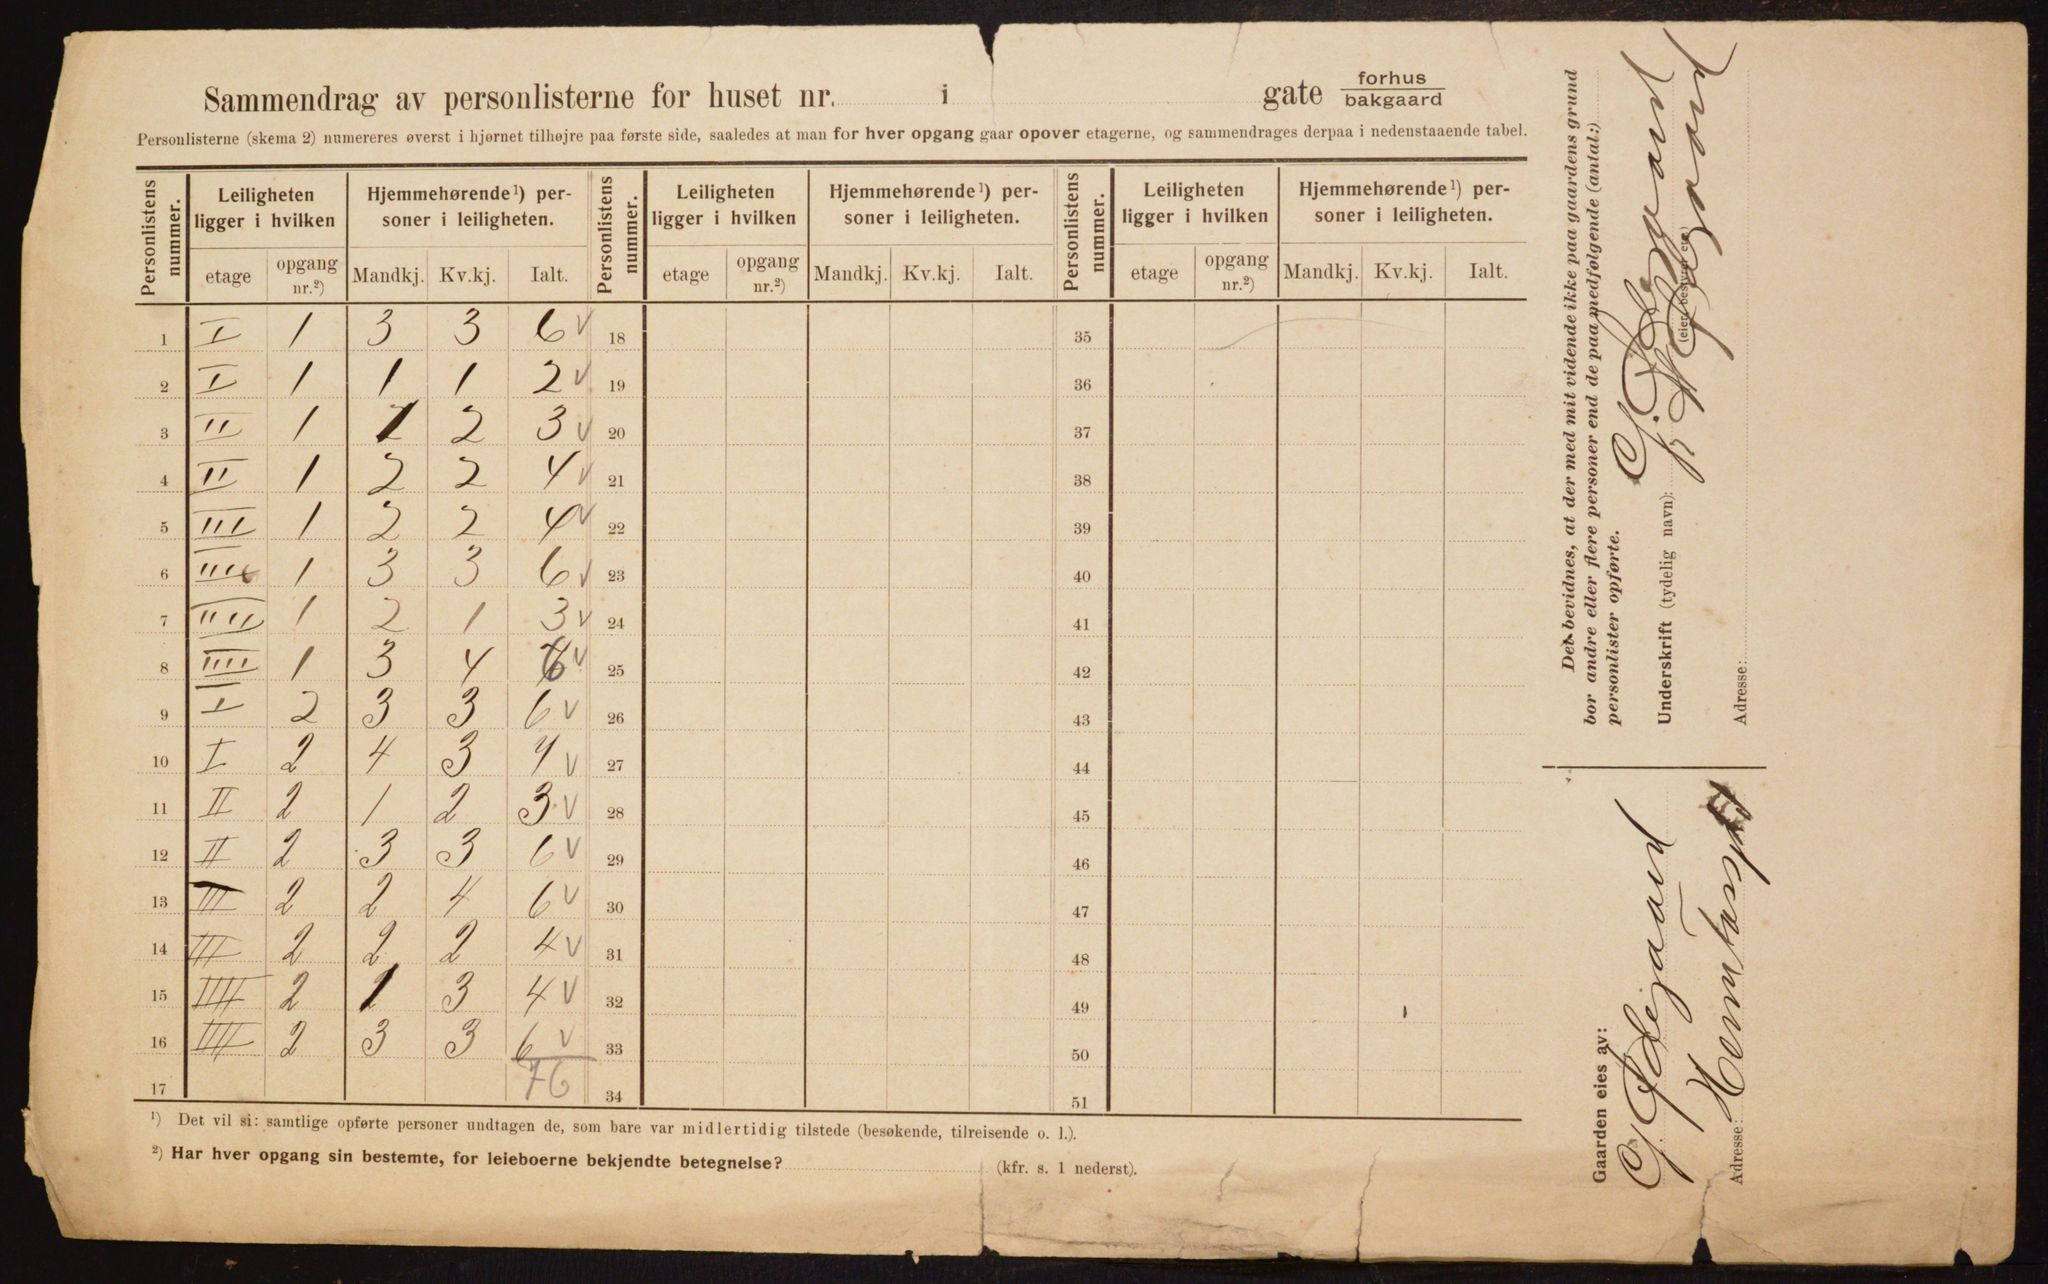 Sammendrag av personlisterne for huset nr. i gate forhus bakgaard
Personlisterne (skema 2) numereres øverst i hjørnet tilhøjre paa første side, saaledes at man for hver opgang gaar opover etagerne, og sammendrages derpaa i nedenstaaende tabel.
Personlistens nummer. Leiligheten ligger i hvilken Hjemmehørende¹) personer i leiligheten. Personlistens nummer. Leiligheten ligger i hvilken Hjemmehørende¹) personer i leiligheten. Personlistens nummer. Leiligheten ligger i hvilken Hjemmehørende¹) personer i leiligheten.
etage opgang nr.²) Mandkj. Kv.kj. Ialt. etage opgang nr.²) Mandkj. Kv.kj. Ialt. etage opgang nr.²) Mandkj. Kv.kj. Ialt.
1 I 1 3 3 6 v 18 35
2 I 1 1 1 2 v 19 36
3 II 1 1 2 3 v 20 37
4 II 1 2 2 4 v 21 38
5 III 1 2 2 4 v 22 39
6 III 1 3 3 6 v 23 40
7 IIII 1 2 1 3 v 24 41
8 IIII 1 3 4 v 25 42
9 I 2 3 3 6 v 26 43
10 I 2 4 3 7 v 27 44
11 II 2 1 2 3 v 28 45
12 II 2 3 3 6 v 29 46
13 III 2 2 4 6 v 30 47
14 III 2 2 2 4 v 31 48
15 IIII 2 1 3 4 v 32 49
16 IIII 2 3 3 6 v 33 50
17 76 34 51
¹) Det vil si: samtlige opførte personer undtagen de, som bare var midlertidig tilstede (besøkende, tilreisende o. l.).
²) Har hver opgang sin bestemte, for leieboerne bekjendte betegnelse? (kfr. s. 1 nederst).
Det bevidnes, at der med mit vidende ikke paa gaardens grund
bor andre eller flere personer end de paa medfølgende (antal:)
personlister opførte.
G. Ødegaard
Underskrift (tydelig navn):
(eier, bestyrer etc.)
Ødegaard
Adresse:
Gaarden eies av:
G Ødegaard
Adresse: